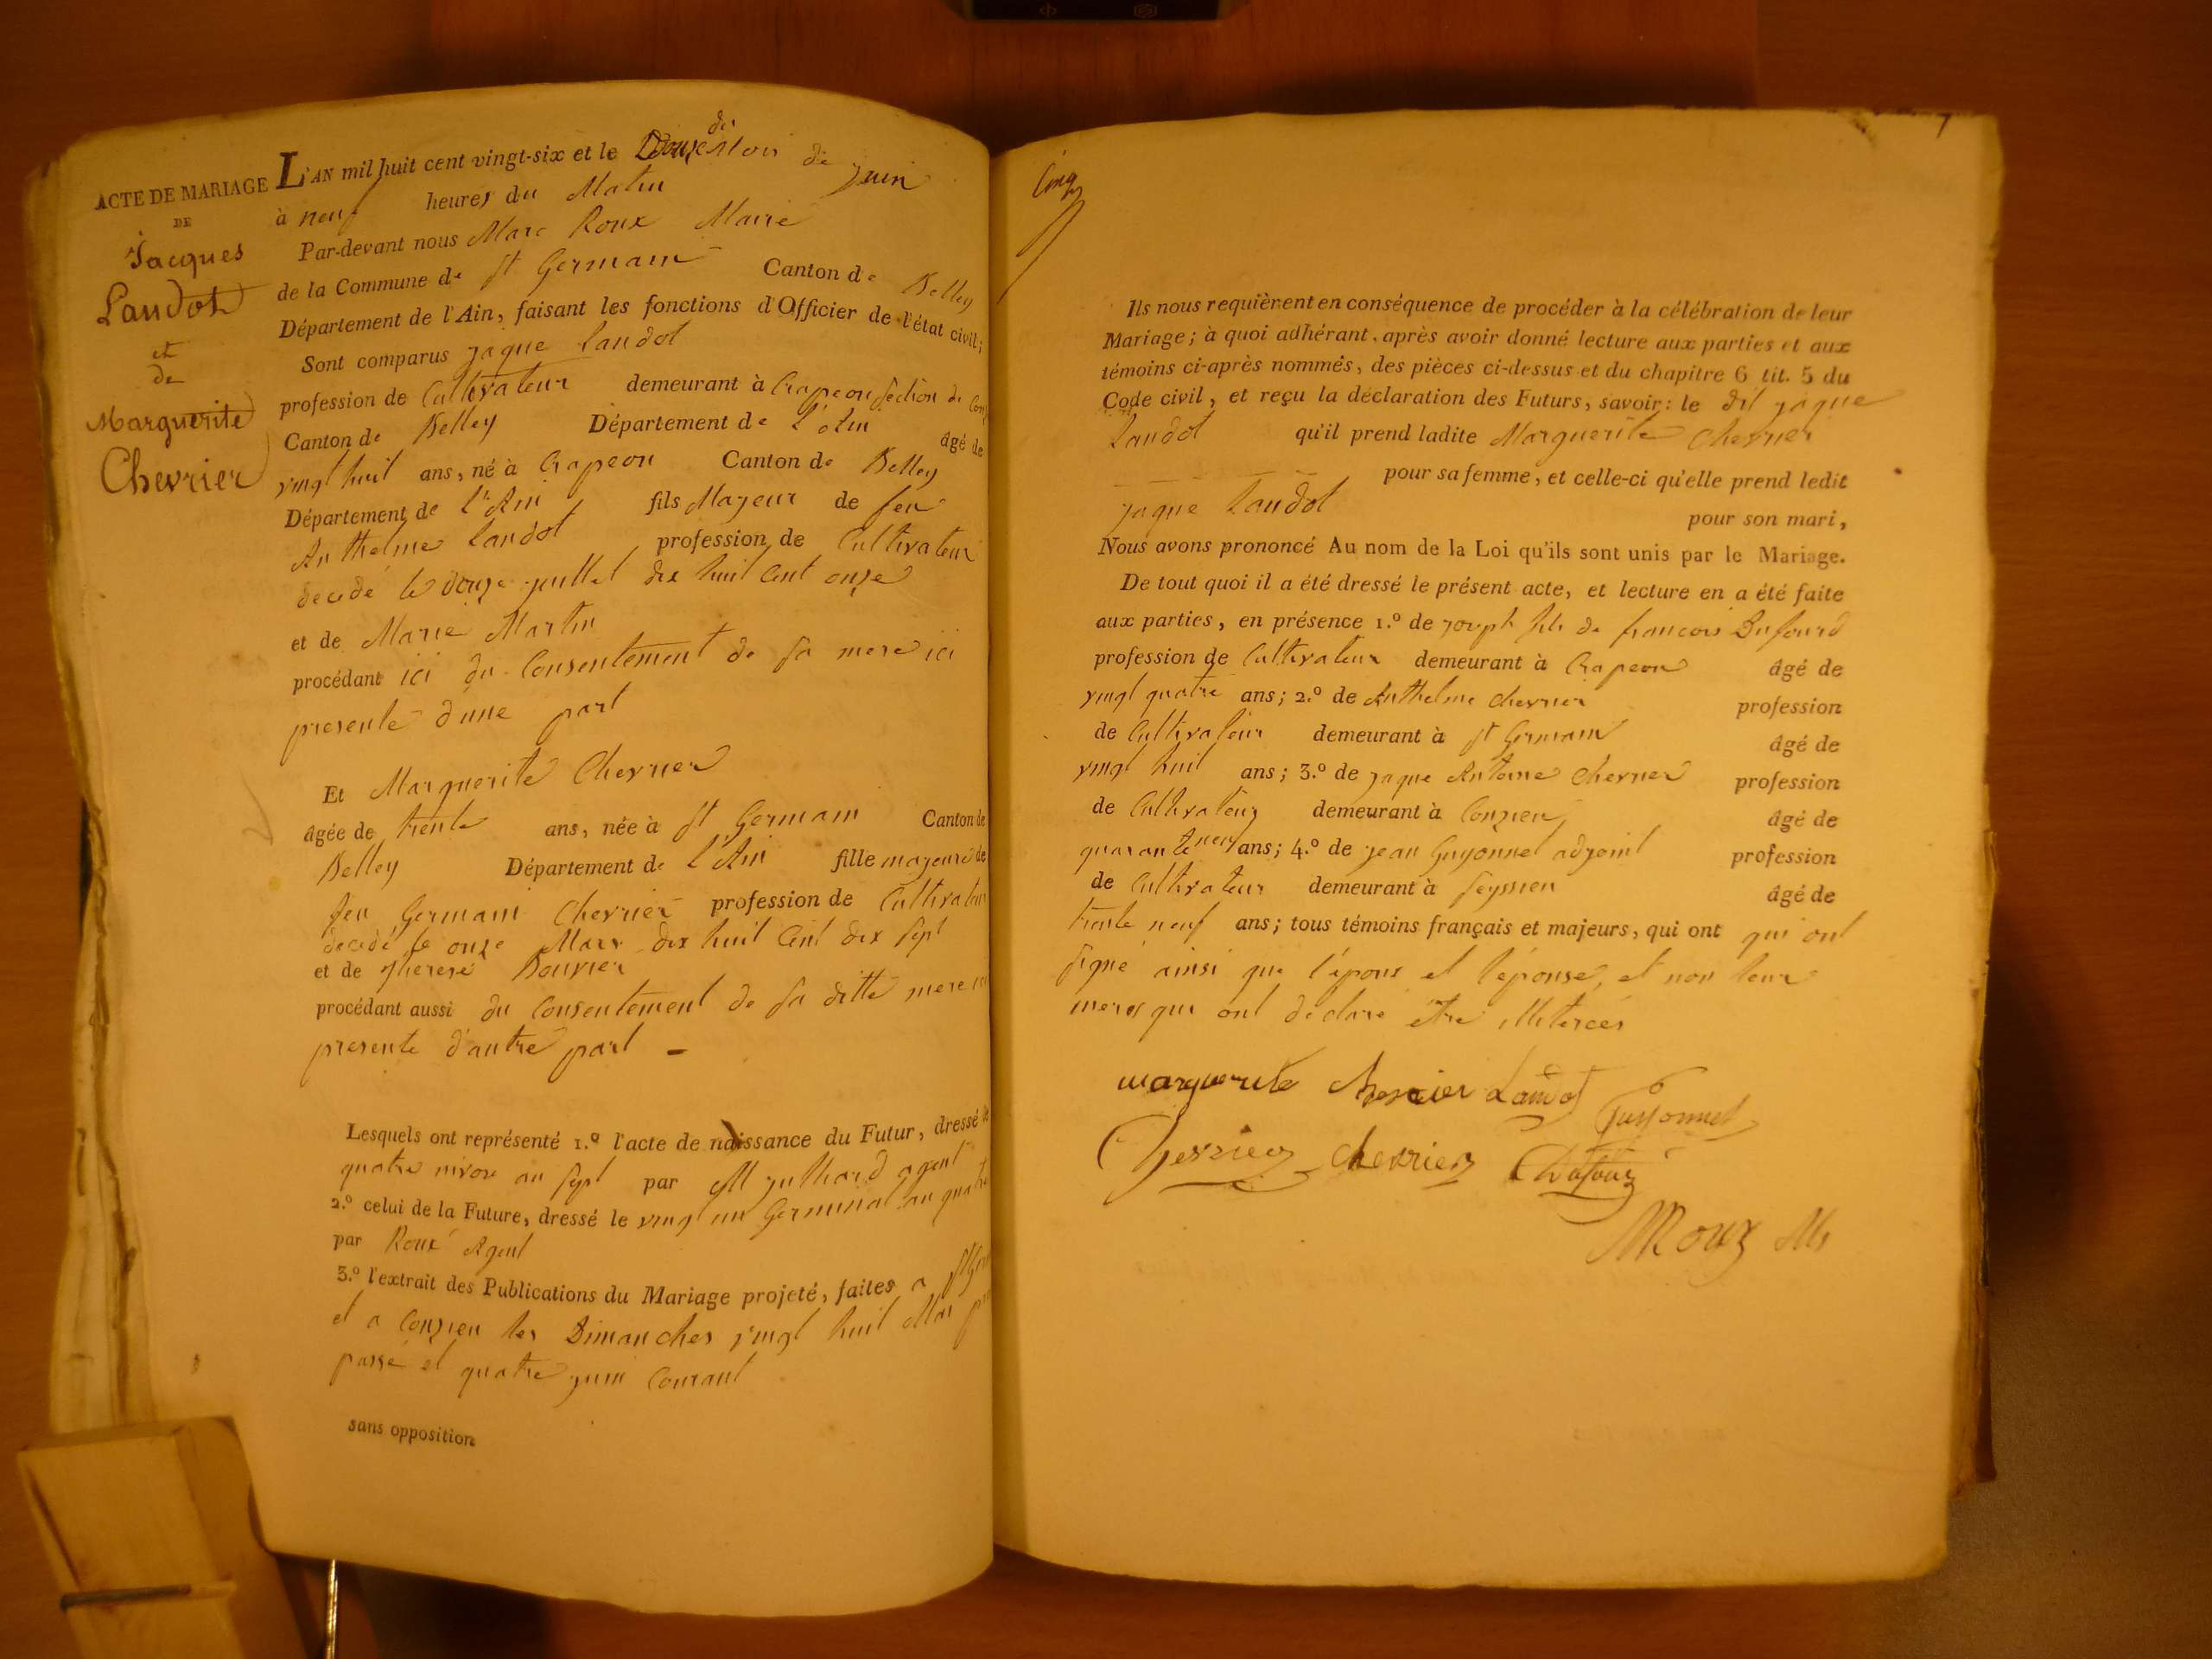 ACTE DE MARIAGE
DE
Jacques
Landot
et
de
Marguerite
Chevrier
L'AN mil huit cent vingt-six et le Douze du Mois de juin
à neuf heures du Matin
Par-devant nous Marc Roux Maire
de la Commune de St Germain Canton de Belley
Département de l'Ain, faisant les fonctions d'Officier de l'état civil;
Sont comparus jaque Landot
profession de Cultivateur demeurant à Crapeou section de
Canton de Belley Département de L'Ain âgé de
vingt huit ans, né à Crapeou Canton de Belley
Département de L'Ain fils Mayeur de feu
Anthelme Landot profession de Cultivateur
decedé le douze juillet dix huit Cent onze
et de Marie Martin
procédant ici du Consentement de sa mere ici
presente d'une part
Et Marguerite Chevrier
âgée de trente ans, née à St Germain Canton de
Belley Département de L'Ain fille majeure de
feu Germain Chevrier profession de Cultivateur
decedé le onze Mars dix huit Cent dix sept
et de therese Bouvier
procédant aussi du Consentement de sa ditte mere ici
presente d'autre part -
Lesquels ont représenté 1.º l'acte de naissance du Futur, dressé le
quatre nivose an sept par Mr juthard agent
2.º celui de la Future, dressé le vingt un Germinal an quatre
par Roux Agent
3.º l'extrait des Publications du Mariage projeté, faites a St
et a Conzieu les Dimanches vingt huit Mai
passé et quatre juin Courant
sans opposition
7
Cinq
Ils nous requièrent en conséquence de procéder à la célébration de leur
Mariage; à quoi adhérant, après avoir donné lecture aux parties et aux
témoins ci-après nommés, des pièces ci-dessus et du chapitre 6 tit. 5 du
Code civil, et reçu la déclaration des Futurs, savoir: le dit jaque
Landot qu'il prend ladite Marguerite Chevrier
pour sa femme, et celle-ci qu'elle prend ledit
jaque Landot pour son mari,
Nous avons prononcé Au nom de la Loi qu'ils sont unis par le Mariage.
De tout quoi il a été dressé le présent acte, et lecture en a été faite
aux parties, en présence 1.º de joseph fils de francois
profession de Cultivateur demeurant à Crapeou âgé de
vingt quatre ans; 2.º de Anthelme Chevrier profession
de Cultivateur demeurant à St Germain âgé de
vingt huit ans; 3.º de jaque Antoine Chevrier profession
de Cultivateur demeurant à Conzieu âgé de
quarante neuf ans; 4.º de jean Guyonnet adjoint profession
de Cultivateur demeurant à seyssieu âgé de
trente neuf ans; tous témoins français et majeurs, qui ont qui ont
signé ainsi que l'époux et l'épouse, et non leur
meres qui ont déclaré être illiterées
marguerite chevrier Landot
Guyonnet
Chevrier Chevrier
MRoux Me